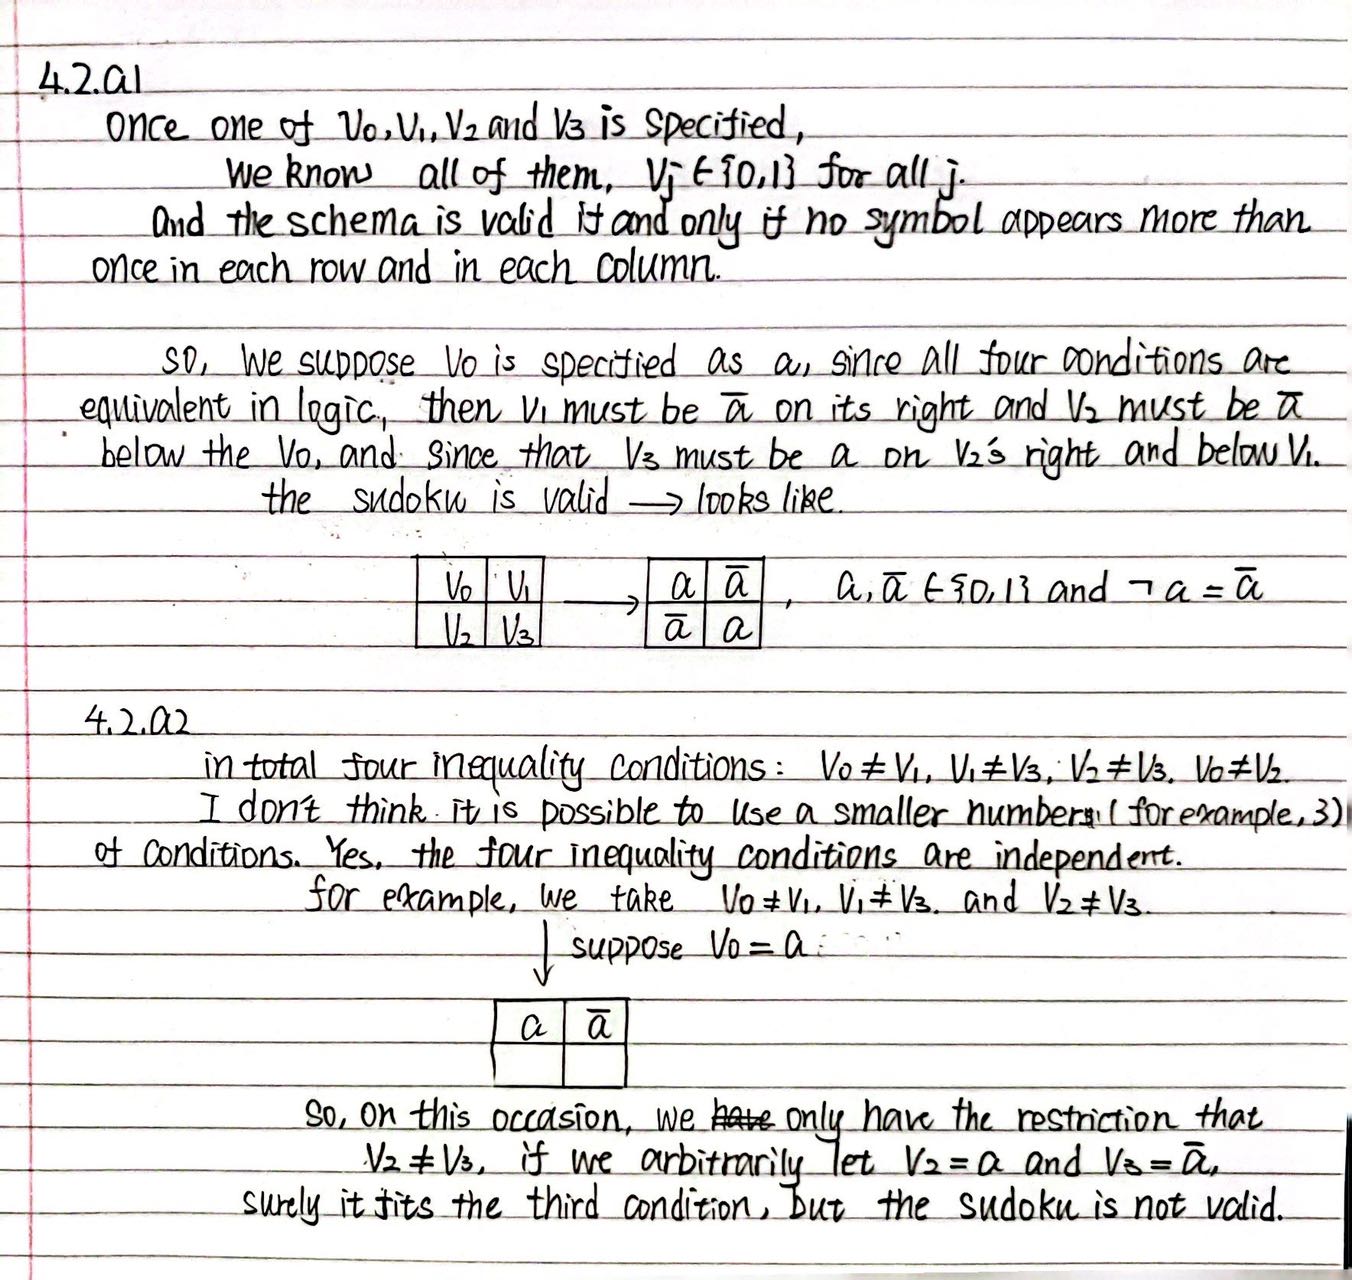 4.2.a1
once one of V0, V1, V2 and V3 is specified,
We know all of them, Vj ∈ {0,1} for all j.
And the schema is valid if and only if no symbol appears more than
once in each row and in each column.
SO, We suppose V0 is specified as a, since all four conditions are
equivalent in logic, then V1 must be ā on its right and V2 must be ā
below the V0, and since that V3 must be a on V2's right and below V1.
the sudoku is valid → looks like.
V0 V1 → a ā , a, ā ∈ {0,1} and ¬a = ā
V2 V3 ā a
4.2.a2
in total four inequality conditions: V0 ≠ V1, V1 ≠ V3, V2 ≠ V3, V0 ≠ V2.
I don't think it is possible to use a smaller numbers (for example, 3)
of conditions. Yes, the four inequality conditions are independent.
for example, we take V0 ≠ V1, V1 ≠ V3. and V2 ≠ V3.
↓ suppose V0 = a
a ā
So, on this occasion, we have only have the restriction that
V2 ≠ V3, if we arbitrarily let V2 = a and V3 = ā,
surely it fits the third condition, but the sudoku is not valid.